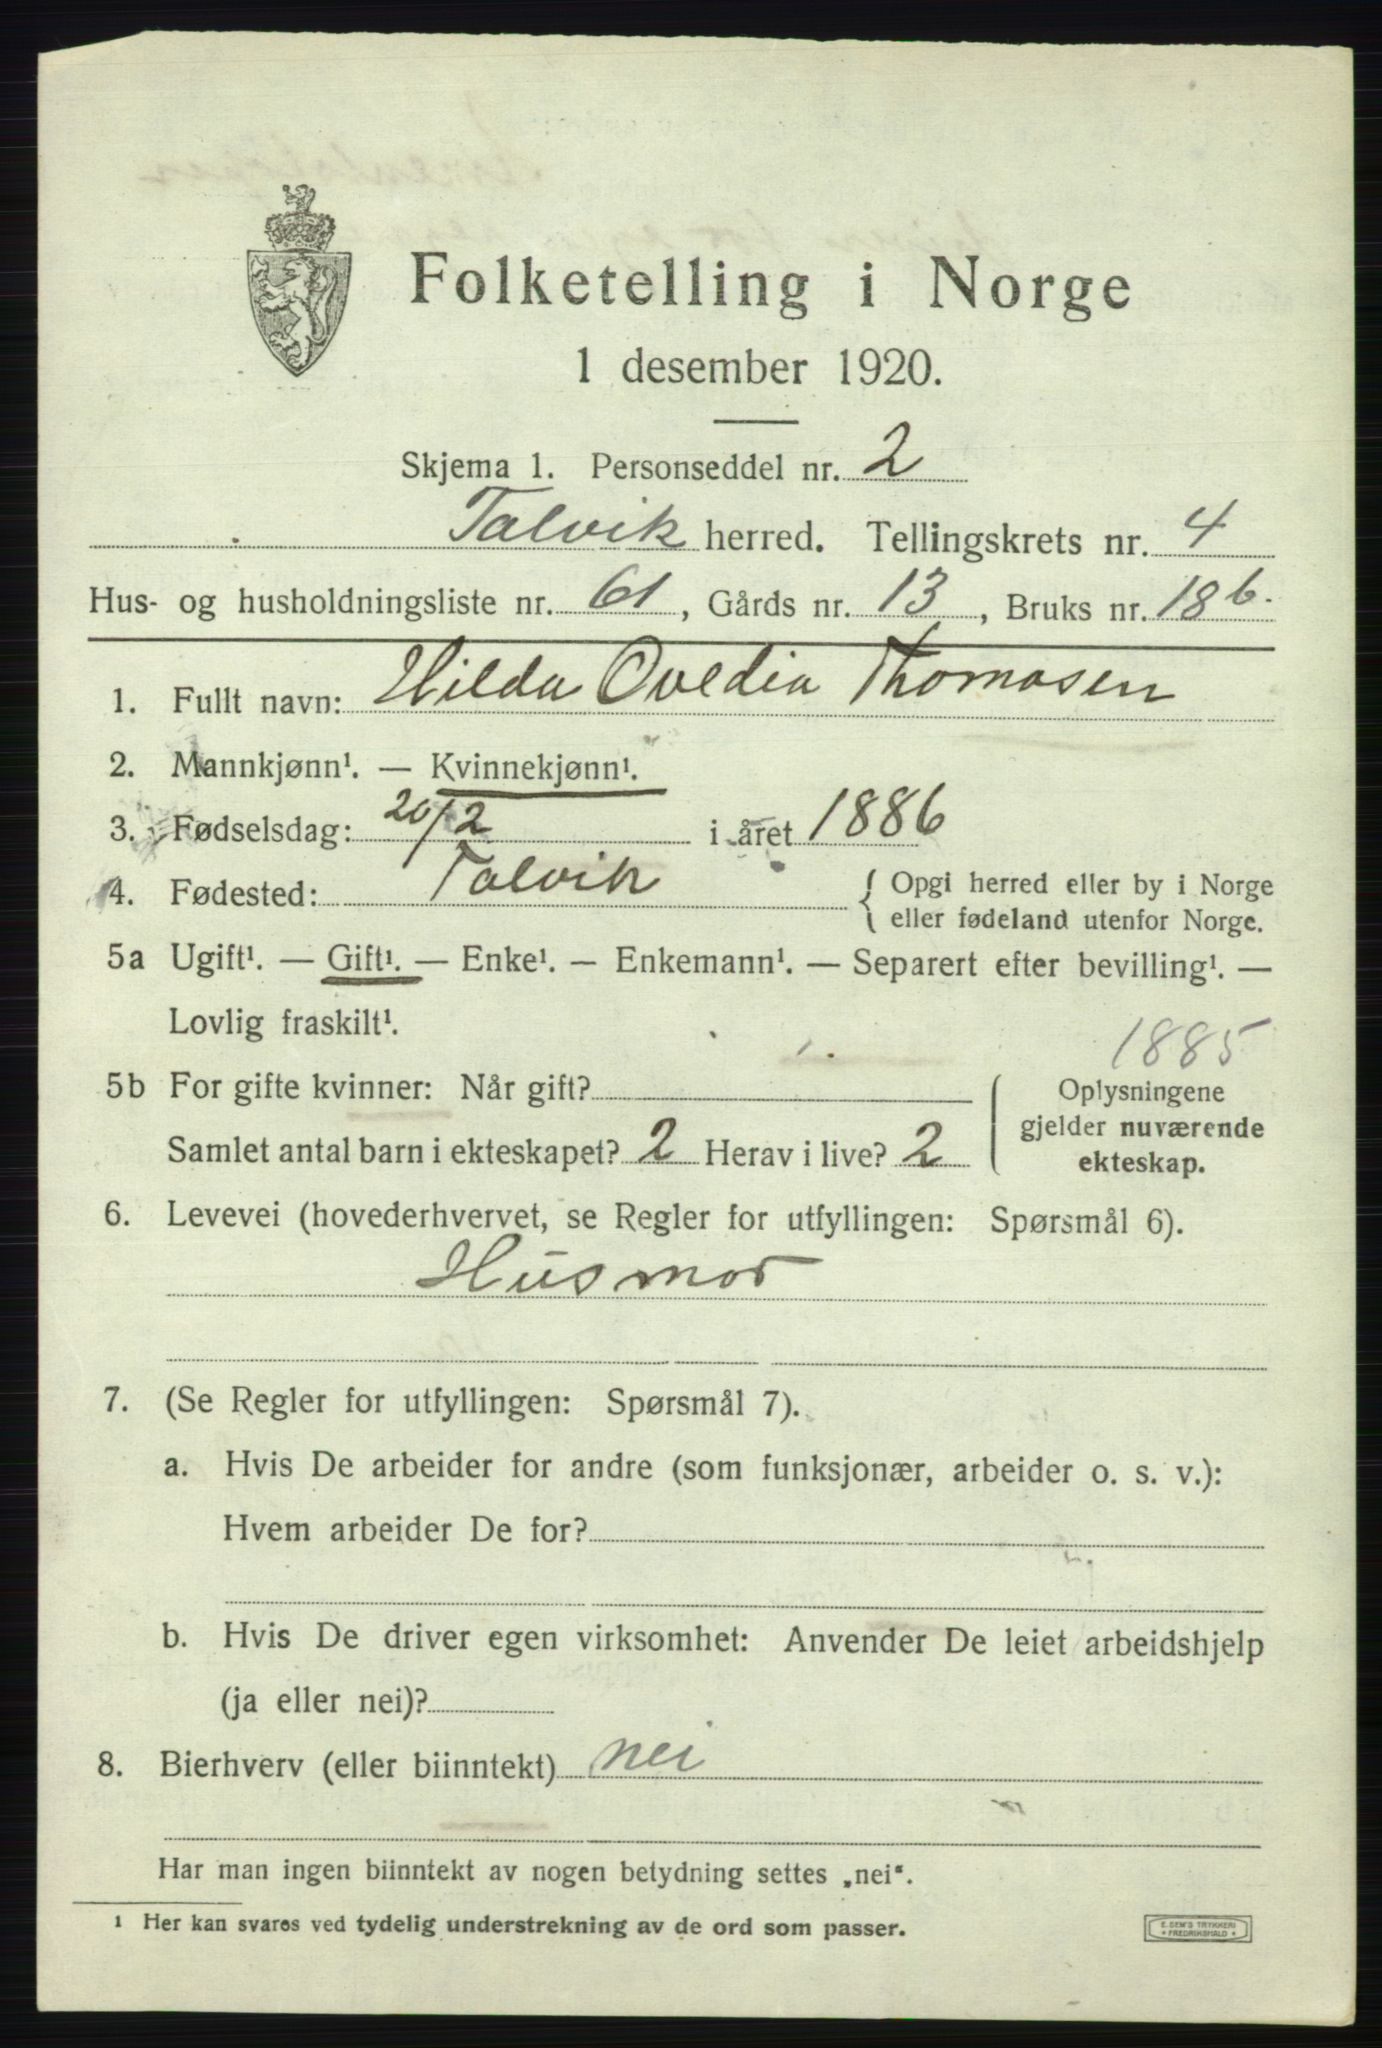 Folketelling i Norge
1 desember 1920.
Skjema 1. Personseddel nr. 2
Talvik herred. Tellingskrets nr. 4
Hus- og husholdningsliste nr. 61, Gårds nr. 13, Bruks nr. 18 b.
1. Fullt navn: Hilda Ovedia Thomasen
2. Mannkjønn¹. — Kvinnekjønn¹.
3. Fødselsdag: 20/2 i året 1886
4. Fødested: Talvik { Opgi herred eller by i Norge
eller fødeland utenfor Norge.
5a Ugift¹. — Gift¹. — Enke¹. — Enkemann¹. — Separert efter bevilling¹. —
Lovlig fraskilt¹.
1885
5b For gifte kvinner: Når gift? Oplysningene
gjelder nuværende
Samlet antal barn i ekteskapet? 2 Herav i live? 2 ekteskap.
6. Levevei (hovederhvervet, se Regler for utfyllingen: Spørsmål 6).
Husmor
7. (Se Regler for utfyllingen: Spørsmål 7).
a. Hvis De arbeider for andre (som funksjonær, arbeider o. s. v.):
Hvem arbeider De for?
b. Hvis De driver egen virksomhet: Anvender De leiet arbeidshjelp
(ja eller nei)?
8. Bierhverv (eller biinntekt) nei
Har man ingen biinntekt av nogen betydning settes „nei".
¹ Her kan svares ved tydelig understrekning av de ord som passer.
E. SEM'S TRYKKERI
* FREDRIKSHALD *